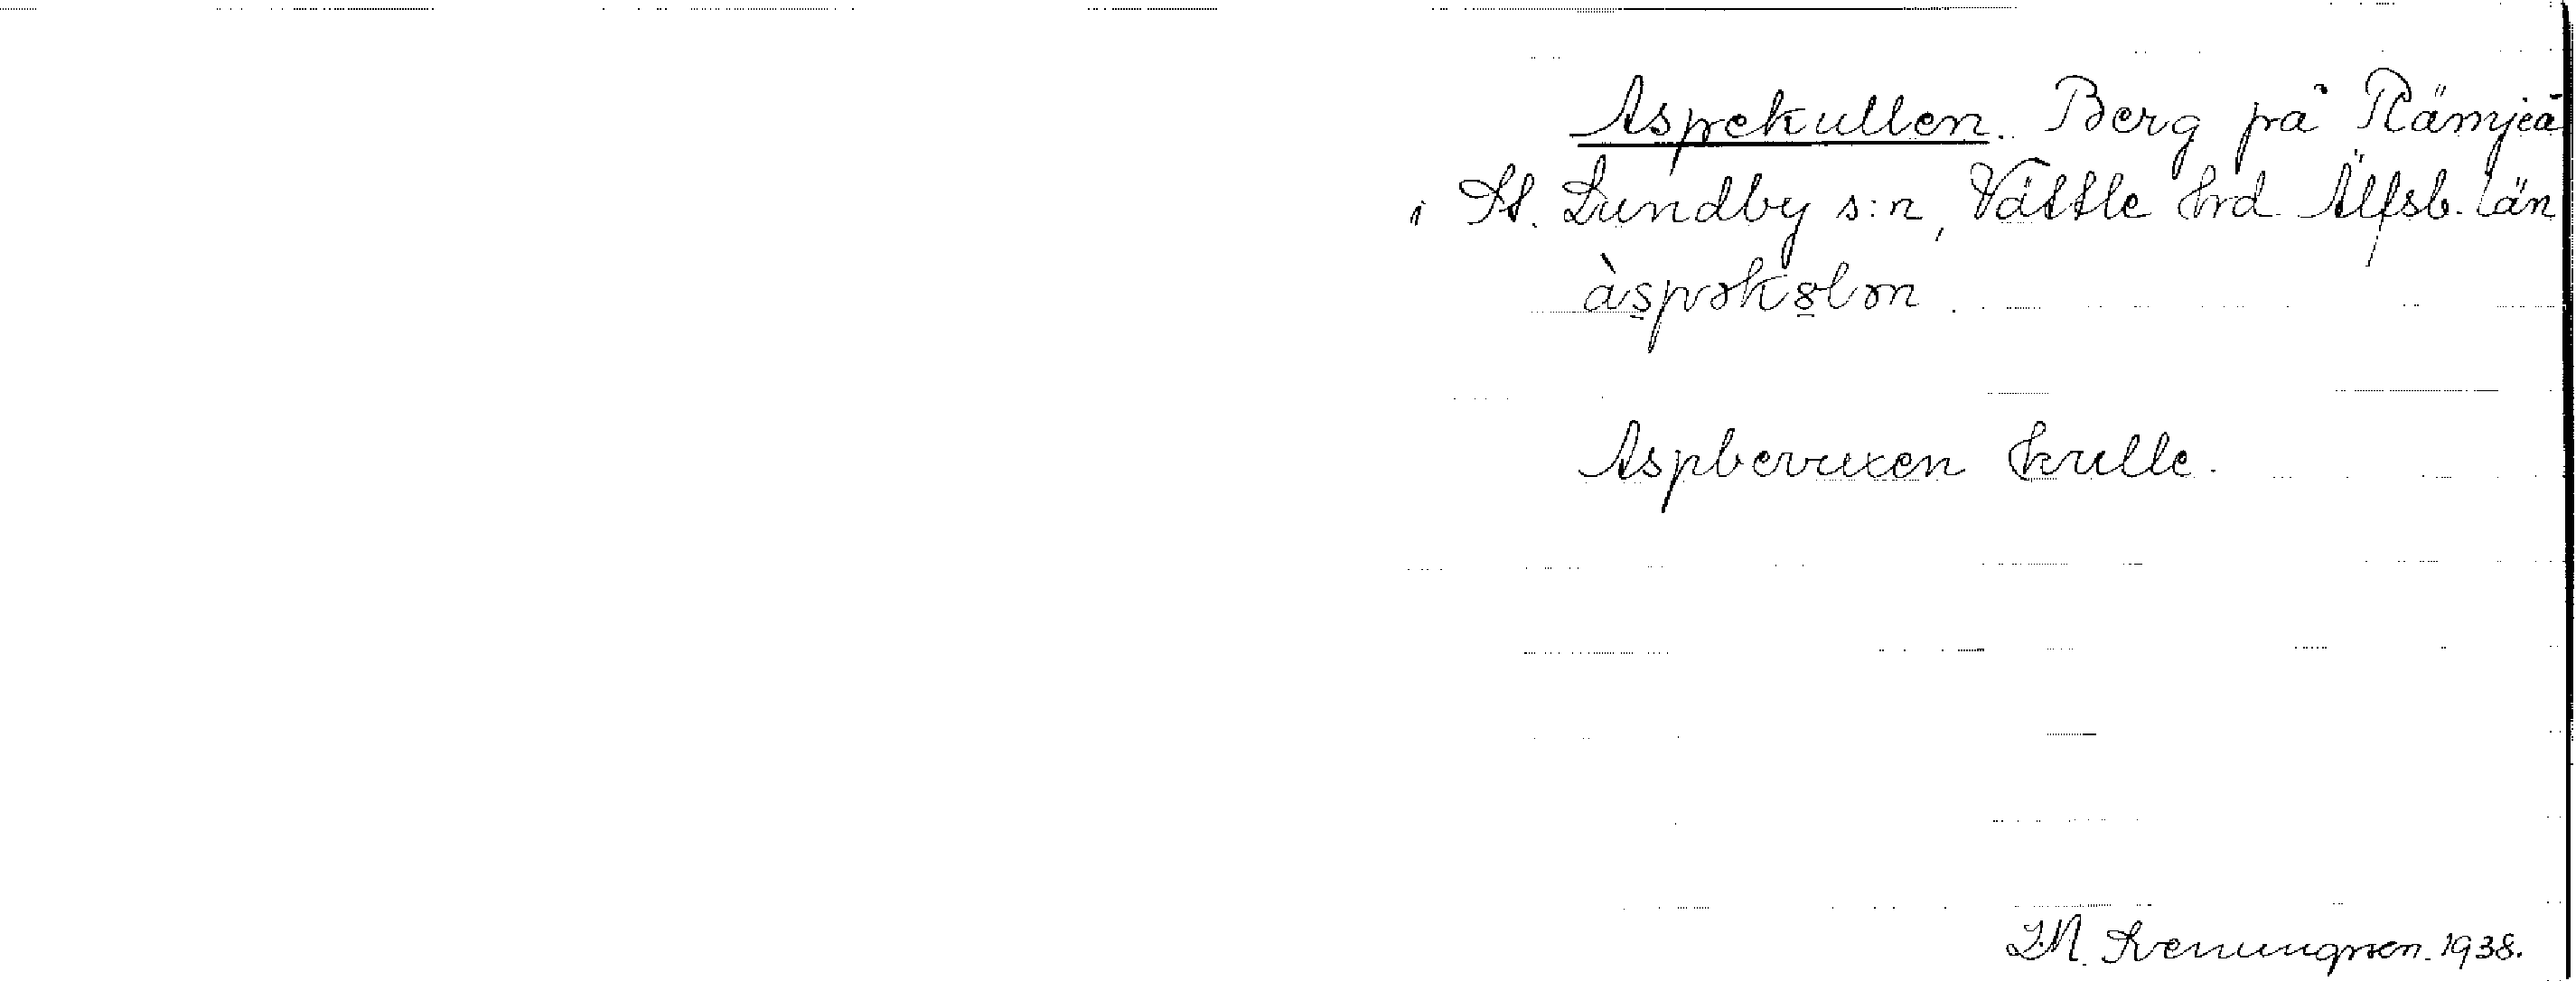 Aspekullen. Berg på Rämjeå
i St. Lundby s:n, Vättle hrd. Älfsb. län
àspəkələn.
Aspbevuxen kulle.
J.M. Svenungsson. 1938.